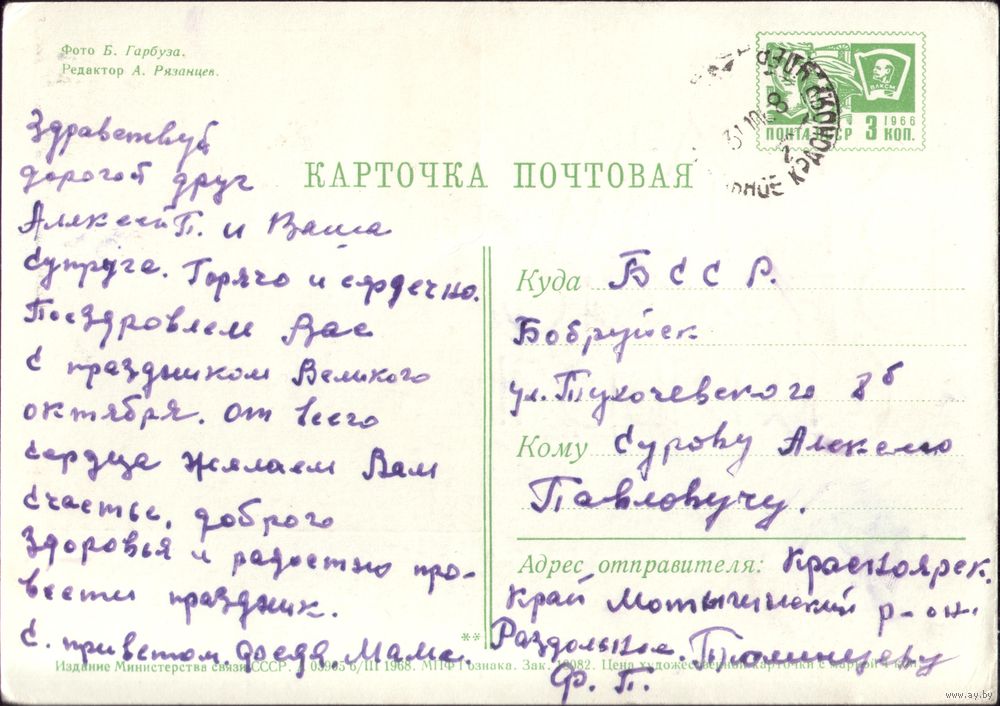 Фото Б. Гарбуза.
Редактор А. Рязанцев.
КАРТОЧКА ПОЧТОВАЯ
ВЛКСМ
1966
ПОЧТА СССР 3 КОП.
Здравствуй
дорогой друг
Алексей П. и Ваша
супруга. Горячо и сердечно.
Поздровлем Вас
с праздником Великого
октября. от всего
сердца желаем Вам
счастье, доброго
здоровья и радостно про-
вести праздник.
С. приветом Мама.
Куда Б С С Р.
Бобруйск
ул. Тухочевского 8б
Кому Сурову Алексею
Павловучу.
Адрес отправителя: Красноярск.
край Мотыгинский р-он.
Раздольное.
Ф. П.
**
Издание Министерства связи СССР. 6/III 1968. МПФ Гознака. Зак. Цена художественной карточки с маркой 4 коп.
www.ay.by